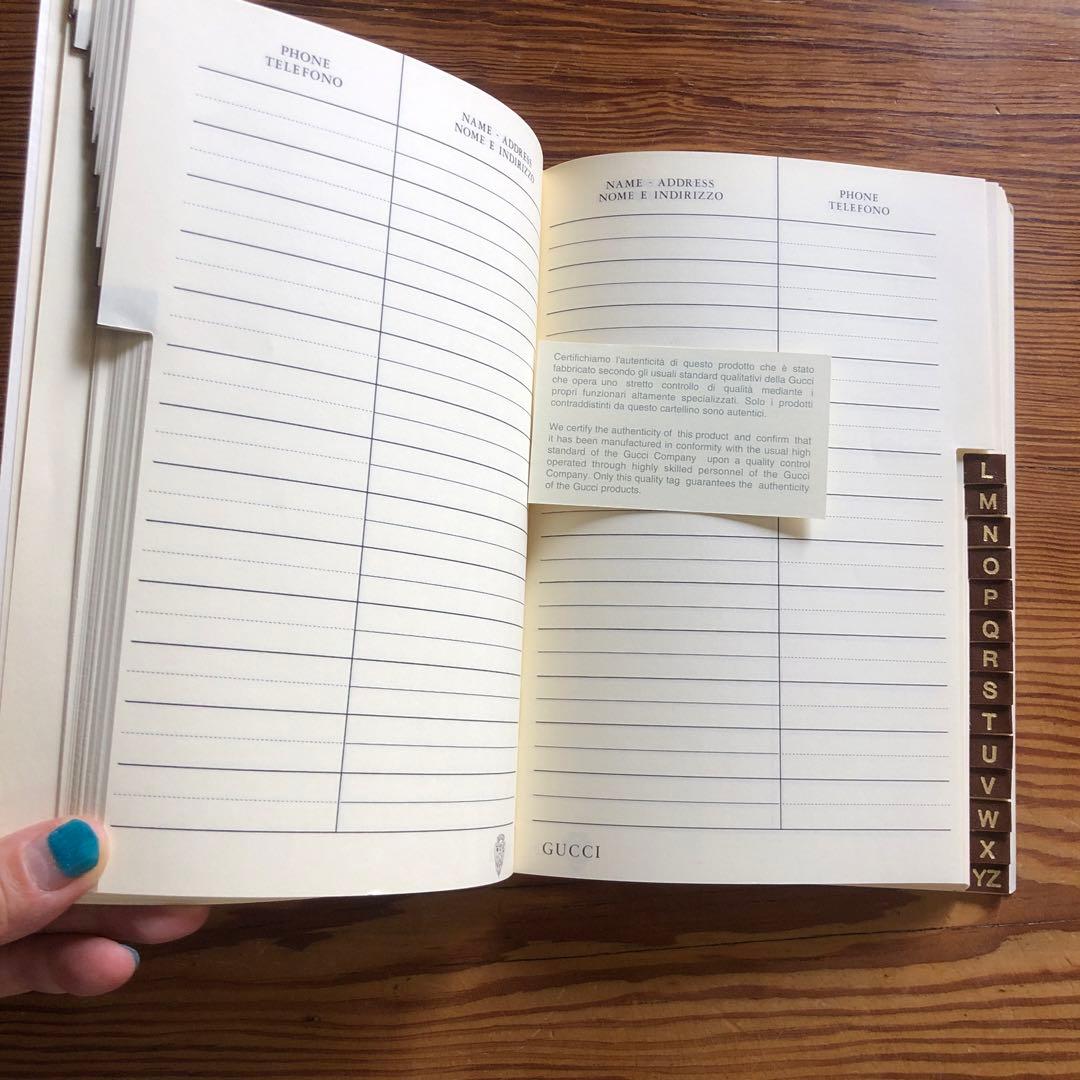 PHONE
TELEFONO
NAME - ADDRESS
NOME E INDIRIZZO
NAME - ADDRESS
NOME E INDIRIZZO
PHONE
TELEFONO
Certifichiamo l'autenticità di questo prodotto che è stato
fabbricato secondo gli usuali standard qualitativi della Gucci
che opera uno stretto controllo di qualità mediante i
propri funzionari altamente specializzati. Solo i prodotti
contraddistinti da questo cartellino sono autentici.
We certify the authenticity of this product and confirm that
it has been manufactured in conformity with the usual high
standard of the Gucci Company upon a quality control
operated through highly skilled personnel of the Gucci
Company. Only this quality tag guarantees the authenticity
of the Gucci products.
L
M
N
O
P
Q
R
S
T
U
V
W
X
YZ
GUCCI